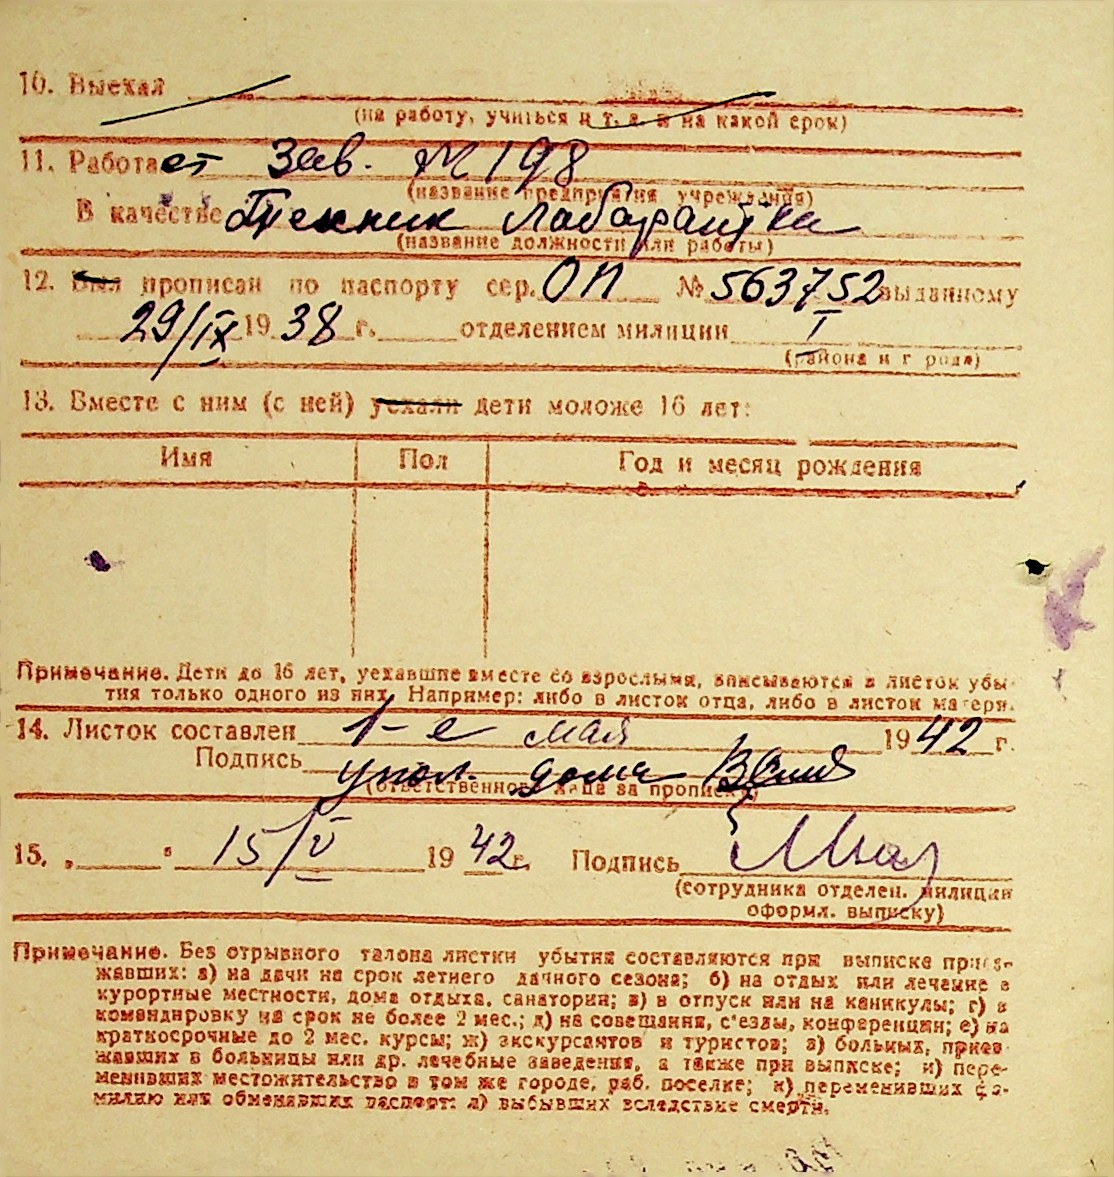 10. Выехал
(на работу, учиться и т. д. и на какой срок)
11. Работает Зав. № 198
(название предприятия учреждения)
В качестве Техник лабарантка
(название должности или работы)
12. Был прописан по паспорту сер. ОП № 563752 выданному
29/IX 1938 г. отделением милиции I
(района и г рода)
13. Вместе с ним (с ней) уехали дети моложе 16 лет:
Имя Пол Год и месяц рождения
Примечание. Дети до 16 лет, уехавшие вместе со взрослыми, вписываются в листок убы-
тия только одного из них. Например: либо в листок отца, либо в листок матери.
14. Листок составлен 1-е мая 1942 г.
Подпись упол. дома
(ответственного лица за прописку)
15. „ “ 15/V 1942 г. Подпись
(сотрудника отделен. милиции
оформл. выписку)
Примечание. Без отрывного талона листки убытия составляются при выписке приез-
жавших: а) на дачи на срок летнего дачного сезона; б) на отдых или лечение в
курортные местности, дома отдыха, санатории; в) в отпуск или на каникулы; г) в
командировку на срок не более 2 мес.; д) на совещания, с'езды, конференции; е) на
краткосрочные до 2 мес. курсы; ж) экскурсантов и туристов; з) больных, приез-
жавших в больницы или др. лечебные заведения, а также при выписке; и) пере-
менивших местожительство в том же городе, раб. поселке; к) переменивших фа-
милию или обменявших паспорт: л) выбывших вследствие смерти.